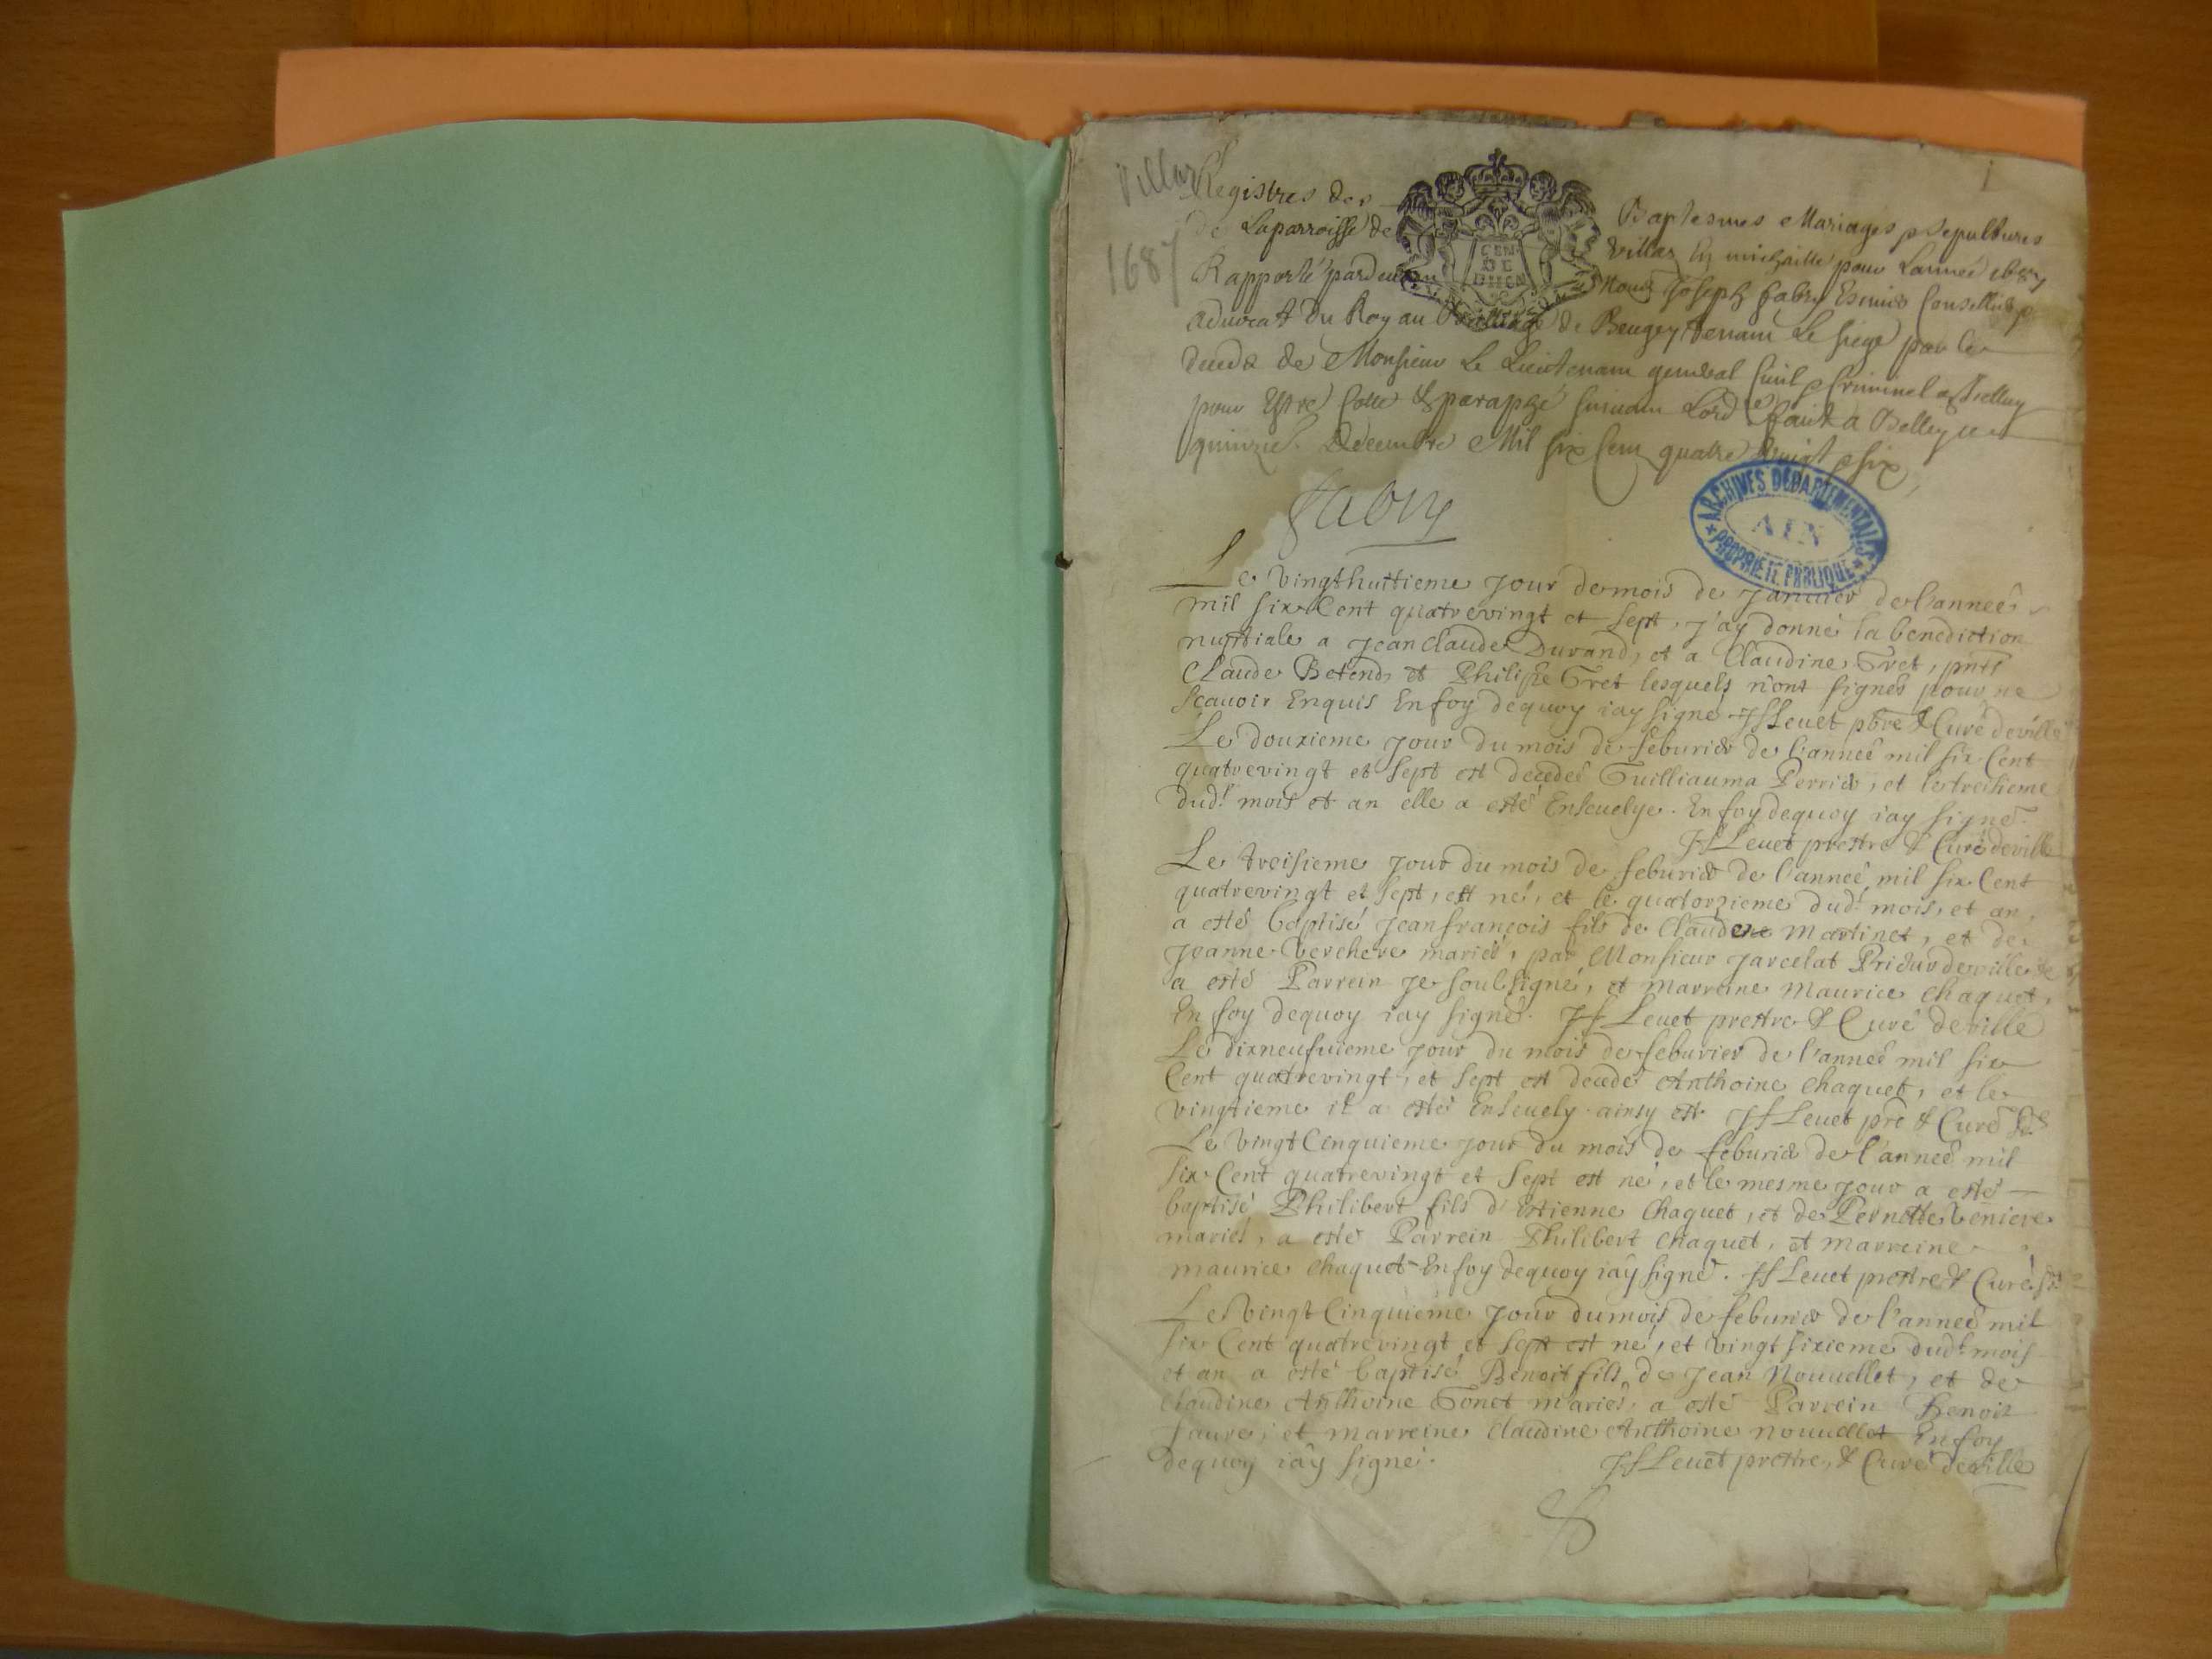 1
Villar
1687
Registres des Baptesmes Mariages & sepultures
de Laparroisse de Villar En michaille pour Lannee 1687
Rapporté pardeuant Nous Joseph fabry Escuier Conseiller &
aduocat du Roy au Bailliage de Beugey tenant Le siege par le
deceds de Monsieur Le Lieutenant general Ciuil & Criminel
pour Estre Cotté & paraphé suiuant Lord.e fait a Belley ce
quinzie. Decembre Mil six Cent quatre vingt & six
fabry
GEN DE
ARCHIVES DÉPARTEMENTALES
AIN
PROPRIÉTÉ PUBLIQUE
Le vingthuitieme jour demois de januier del'anneé
mil six Cent quatrevingt et sept, j'ay donné la benediction
nuptiale a jean claude Durand, et a Claudine Gret, pnts
Claude Betend, et Philipe Gret lesquels n'ont signés pour ne
scauoir Enquis En foy dequoy iay signe JfLeuet pbre & Curé deville
Le douxieme jour du mois de feburier de l'anneé mil six Cent
quatrevingt et sept est decedeé Guilliauma Perrier, et le treisieme
dud.t mois et an elle a esté Enseuelye. En foy dequoy iay signé.
JfLeuet prestre & Curé deville
Le treisieme jour du mois de feburier de l'anneé mil six Cent
quatrevingt et sept, est né, et le quatorzieme dud.t mois, et an,
a esté baptisé jean francois fils de Claude Martinet, et de
jeanne Verchere mariés, par Monsieur jarcelat Prieur deville
a esté Parrein je soubsigné, et marreine Maurice Chaquet,
En foy dequoy iay signé. Jf Leuet prestre & Curé deville
Le dixneufuieme jour du mois de feburier de l'anneé mil six
Cent quatrevingt, et sept est decedé Anthoine Chaquet, et le
vingtieme il a esté Enseuely ainsy est JfLeuet pre & Curé
Le vingt Cinquieme jour du mois de feburier de l'anneé mil
six Cent quatrevingt et sept est né, et le mesme jour a esté
baptisé Philibert fils d'Estienne Chaquet, et de Pernette Veniere
mariés, a esté Parrein Philibert Chaquet, et marreine
maurice Chaquet En foy dequoy iay signé. JfLeuet prestre & Curé
Le Vingt Cinquieme jour du mois de feburier de l'anneé mil
six Cent quatrevingt et sept est né, et vingt sixieme dud.t mois
et an a esté baptisé Benoit fils de jean Nouuellet, et de
Claudine Anthoine Gonet mariés, a esté Parrein Benoit
faure, et marreine Claudine Anthoine nouuellet En foy
dequoy iay signé. JfLeuet prestre, & Curé deville